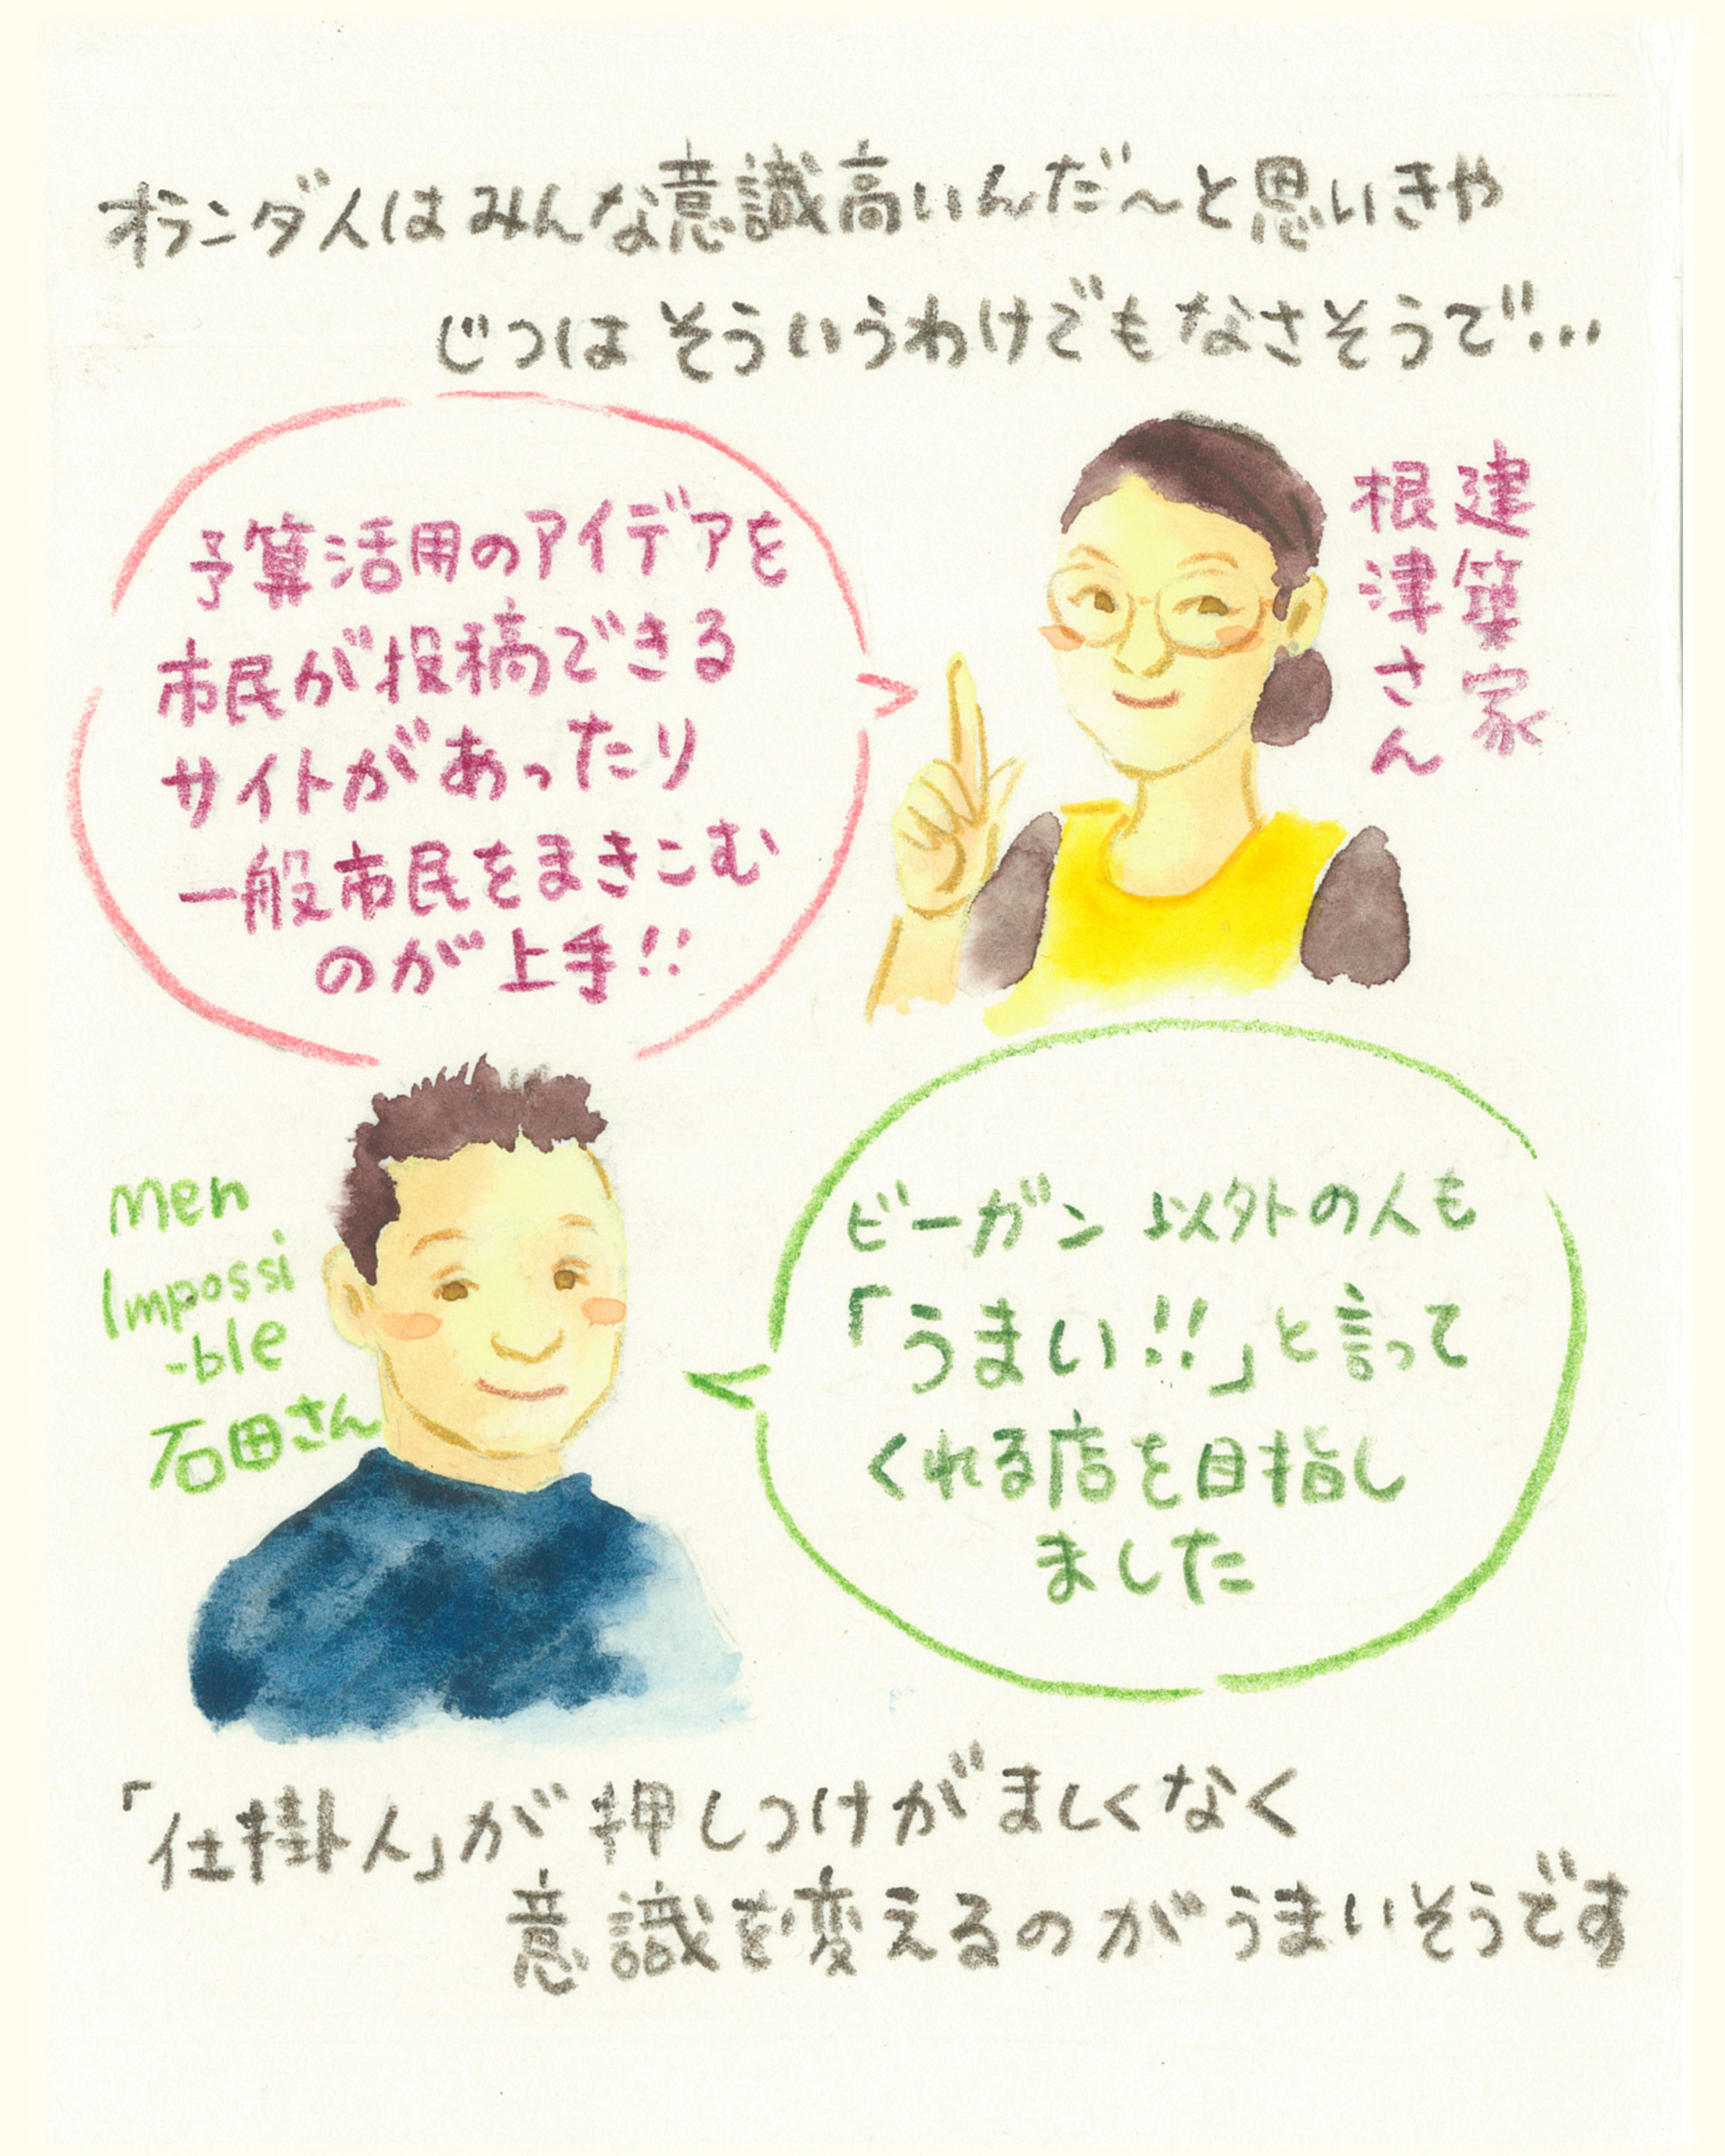 オランダ人はみんな意識高いんだ〜と思いきや
じつはそういうわけでもなさそうで…
予算活用のアイデアを
市民が投稿できる
サイトがあったり
一般市民をまきこむ
のが上手!!
建築家
根津さん
Men
Impossi
-ble
石田さん
ビーガン以外の人も
「うまい!!」と言って
くれる店を目指し
ました
「仕掛人」が押しつけがましくなく
意識を変えるのがうまいそうです